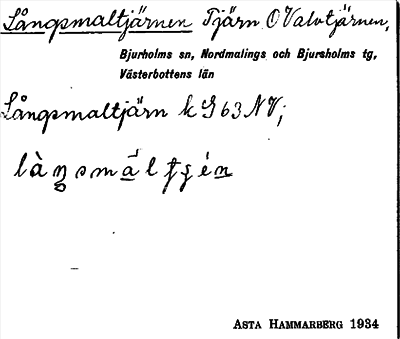 Långsmaltjärnen Tjärn O Valvtjärnen,
Bjurholms sn, Nordmalings och Bjurholms tg,
Västerbottens län
Långsmaltjärn k G 63 NV;
ASTA HAMMARBERG 1934